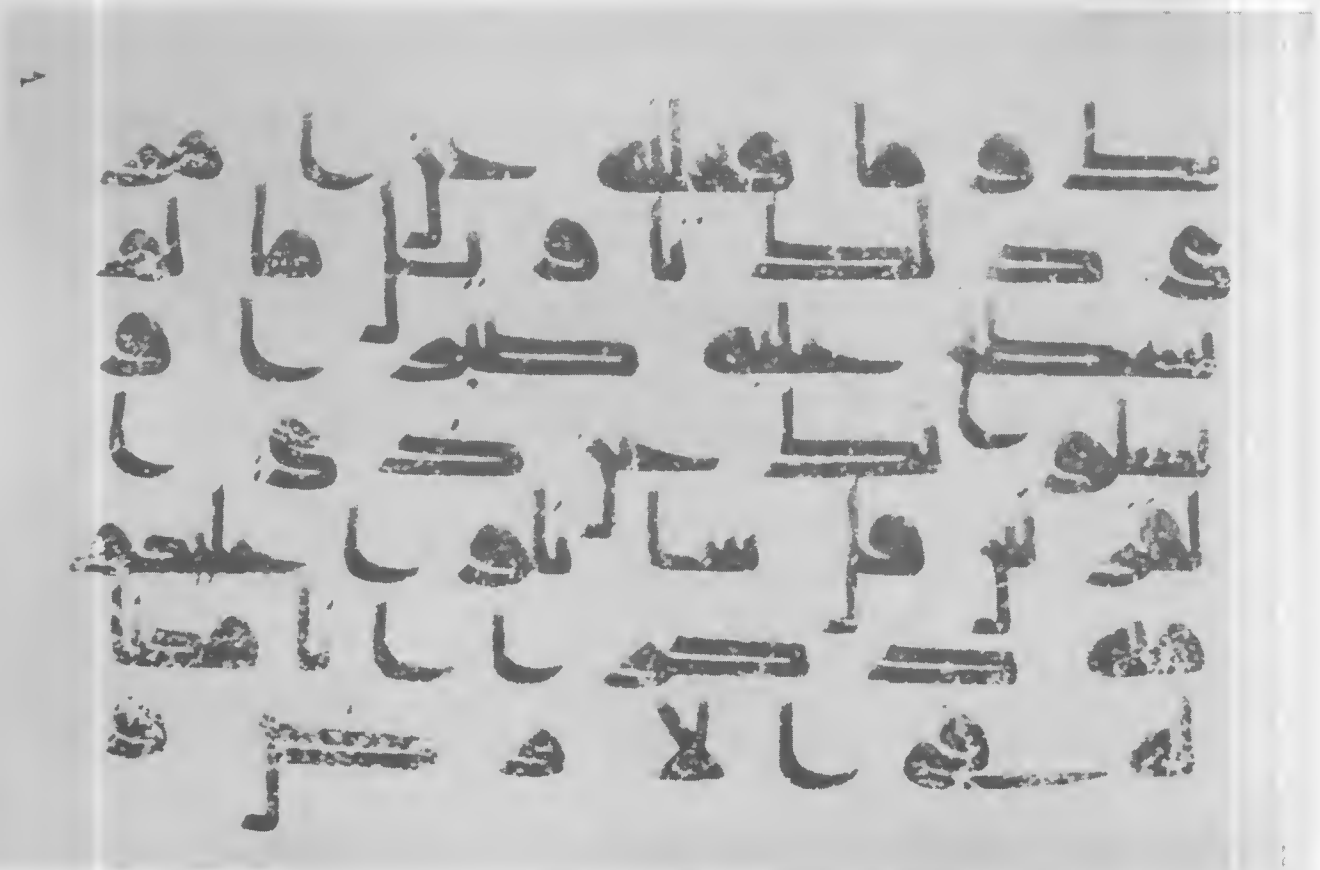 بك وما فعلته عن امر
ي ذلك تاويل ما لم
تسطع عليه صبرا و
يسلونك عن ذي ا
لقرنين قل ساتلوا عليكم
منه ذكرا انا مكنا
له في الارض و